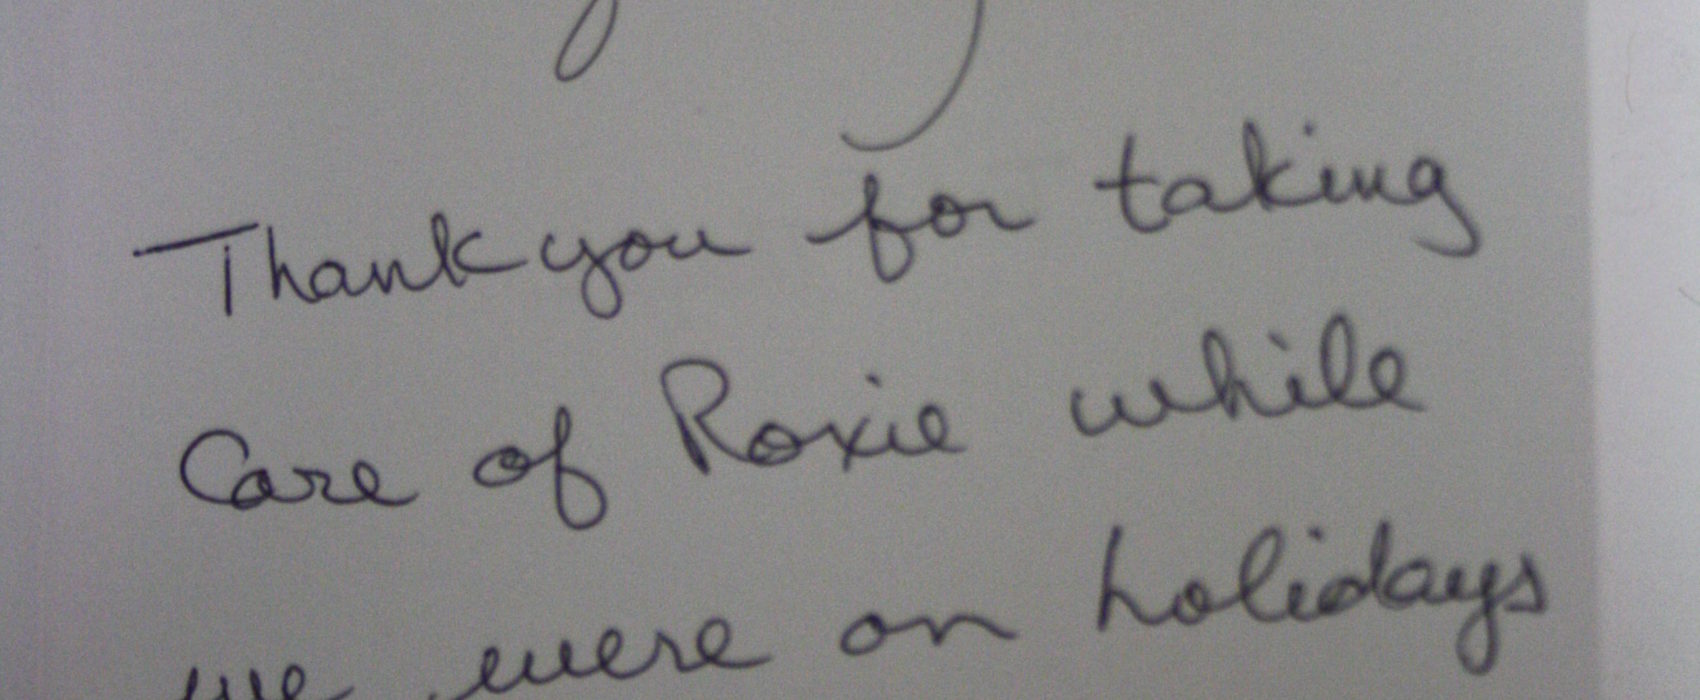 Thank you for taking
Care of Roxie while
we were on holidays